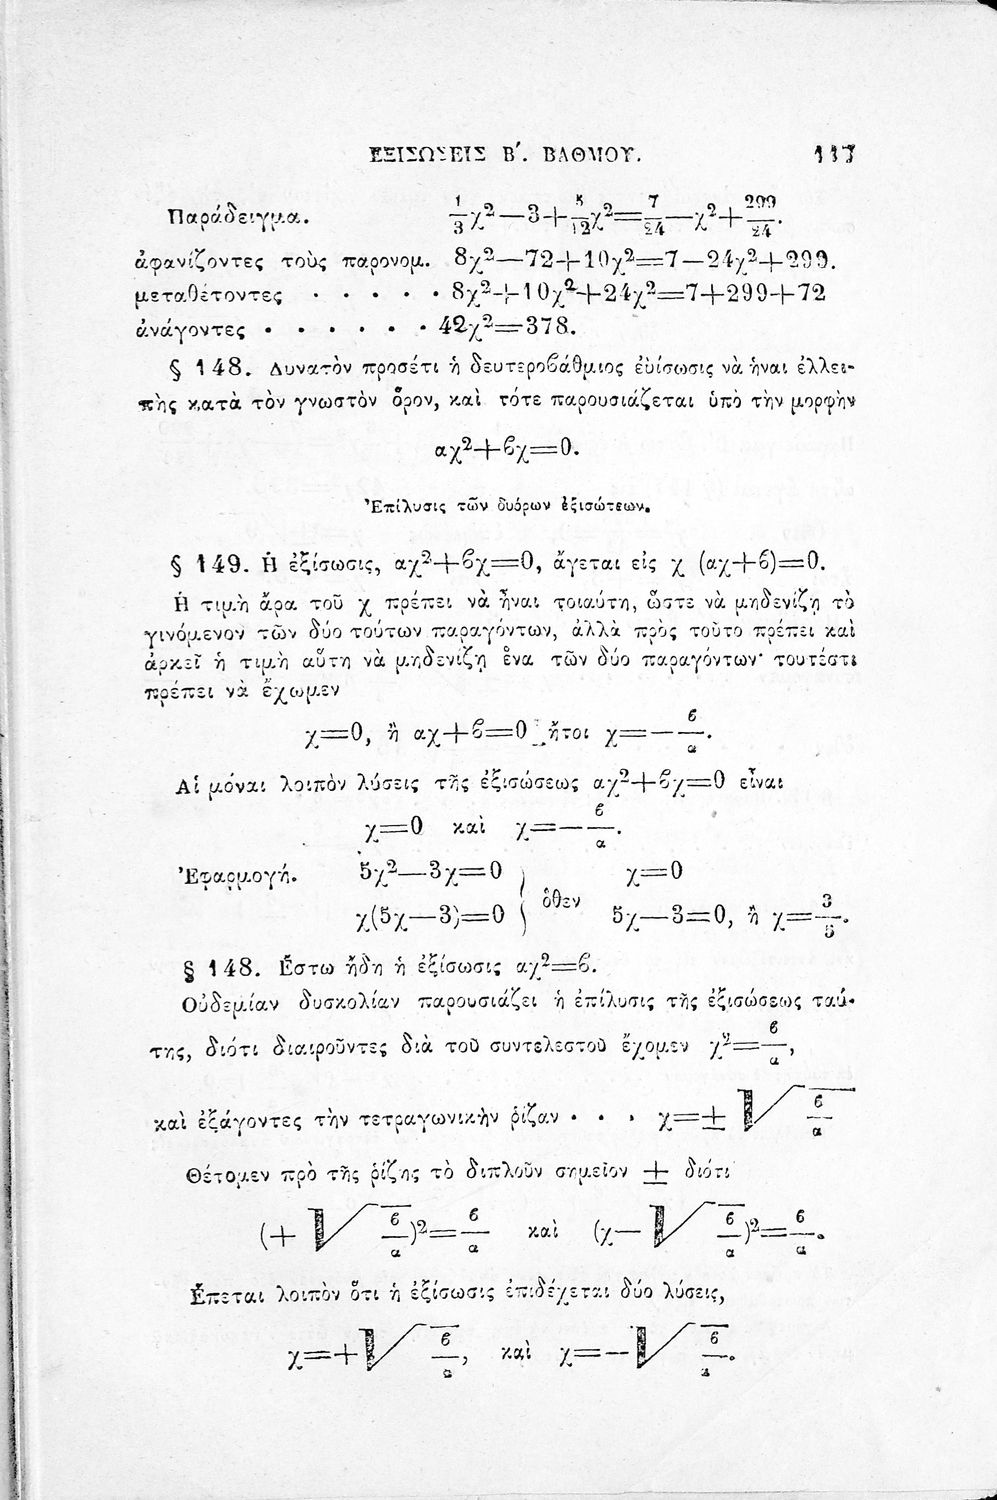 ΕΞΙΣΩΣΕΙΣ Β΄. ΒΑΘΜΟΥ. 117
Παράδειγμα. 1/3 χ²—3+5/12 χ²=7/24—χ²+299/24.
ἀφανίζοντες τοὺς παρονομ. 8χ²—72+10χ²=7—24χ²+299.
μεταθέτοντες . . . . . 8χ²+10χ²+24χ²=7+299+72
ἀνάγοντες . . . . . . 42χ²=378.
§ 148. Δυνατὸν προσέτι ἡ δευτεροϐάθμιος ἐὐίσωσις νὰ ἦναι ἐλλει-
πὴς κατὰ τὸν γνωστὸν ὅρον, καὶ τότε παρουσιάζεται ὑπὸ τὴν μορφὴν
αχ²+ϐχ=0.
Ἐπίλυσις τῶν δυόρων ἐξισώσεων.
§ 149. Ἡ ἐξίσωσις, αχ²+ϐχ=0, ἄγεται εἰς χ (αχ+ϐ)=0.
Ἡ τιμὴ ἄρα τοῦ χ πρέπει νὰ ἦναι τοιαύτη, ὥστε νὰ μηδενίζῃ τὸ
γινόμενον τῶν δύο τούτων παραγόντων, ἀλλὰ πρὸς τοῦτο πρέπει καὶ
ἀρκεῖ ἡ τιμὴ αὕτη νὰ μηδενίζῃ ἕνα τῶν δύο παραγόντων· τουτέστι
πρέπει νὰ ἔχωμεν
χ=0, ἢ αχ+ϐ=0 ἤτοι χ=—ϐ/α.
Αἱ μόναι λοιπὸν λύσεις τῆς ἐξισώσεως αχ²+ϐχ=0 εἶναι
χ=0 καὶ χ=—ϐ/α.
Ἐφαρμογή. 5χ²—3χ=0 } χ=0
χ(5χ—3)=0 } ὅθεν 5χ—3=0, ἢ χ=3/5.
§ 148. Ἔστω ἤδη ἡ ἐξίσωσις αχ²=ϐ.
Οὐδεμίαν δυσκολίαν παρουσιάζει ἡ ἐπίλυσις τῆς ἐξισώσεως ταύ-
της, διότι διαιροῦντες διὰ τοῦ συντελεστοῦ ἔχομεν χ²=ϐ/α,
καὶ ἐξάγοντες τὴν τετραγωνικὴν ῥίζαν . . . χ=± √ϐ/α
Θέτομεν πρὸ τῆς ῥίζης τὸ διπλοῦν σημεῖον ± διότι
(+ √ϐ/α)²=ϐ/α καὶ (χ— √ϐ/α)²=ϐ/α.
Ἕπεται λοιπὸν ὅτι ἡ ἐξίσωσις ἐπιδέχεται δύο λύσεις,
χ=+√ϐ/α, καὶ χ=—√ϐ/α.